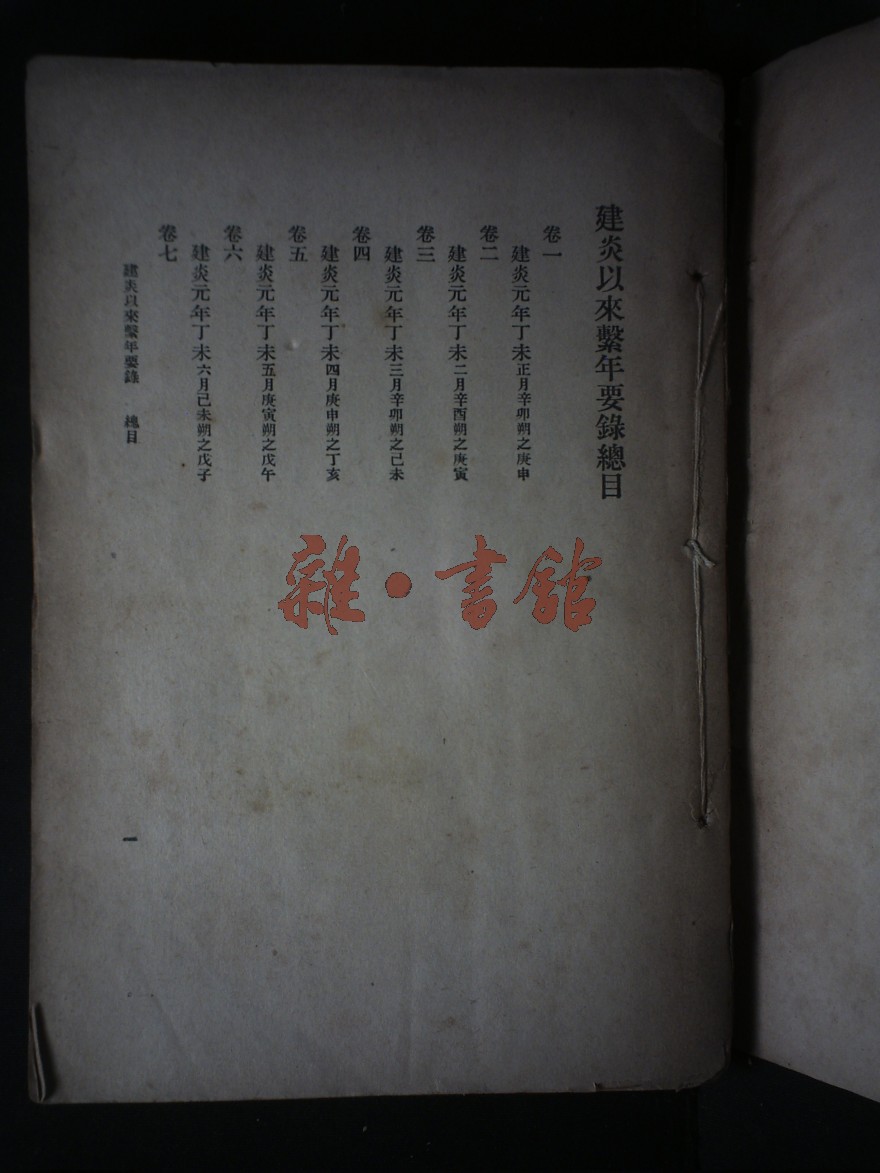 建炎以來繫年要錄總目
卷一
建炎元年丁未正月辛卯朔之庚申
卷二
建炎元年丁未二月辛酉朔之庚寅
卷三
建炎元年丁未三月辛卯朔之己未
卷四
建炎元年丁未四月庚申朔之丁亥
卷五
建炎元年丁未五月庚寅朔之戊午
卷六
建炎元年丁未六月己未朔之戊子
卷七
建炎以來繫年要錄 總目
一
雜·書館